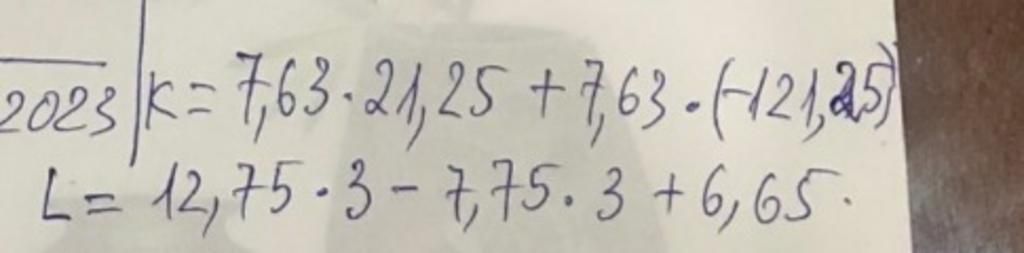 2023 | K = 7,63 · 21,25 + 7,63 · (-121,25)
L = 12,75 · 3 - 7,75 · 3 + 6,65 .